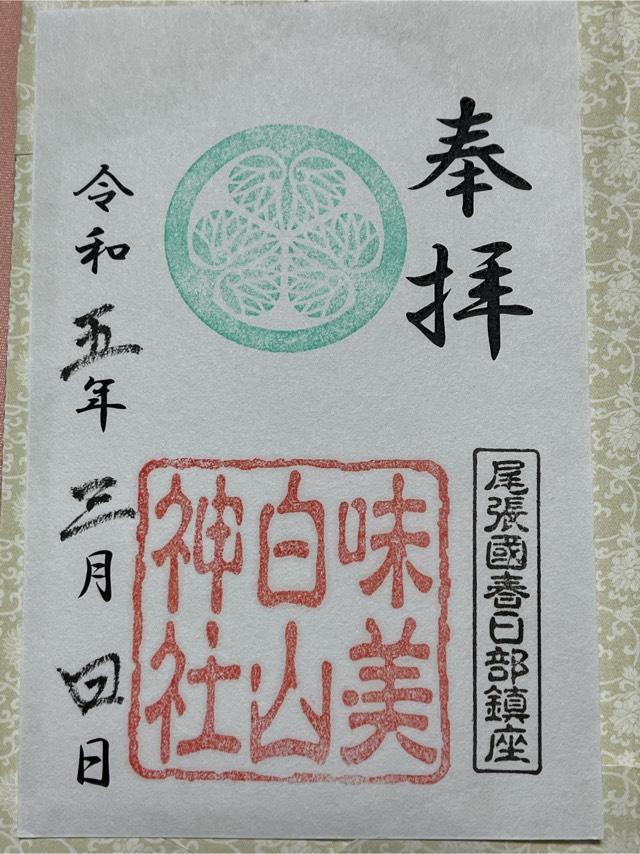 奉拝
尾張國春日部鎮座
味美
白山
神社
令和五年三月四日